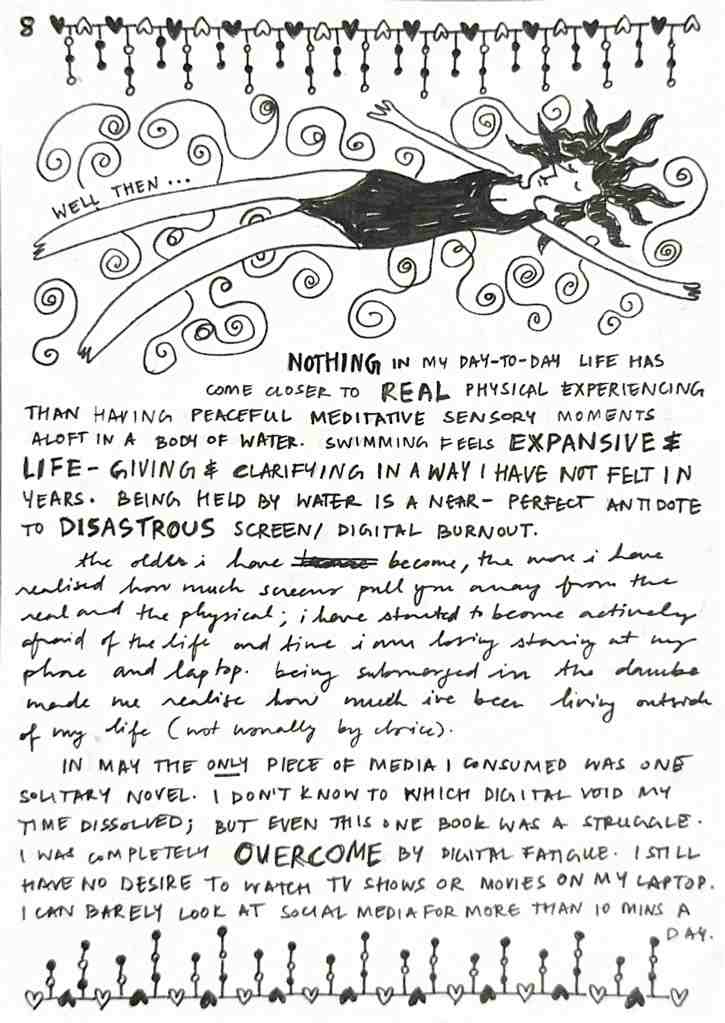 8
WELL THEN...
NOTHING IN MY DAY-TO-DAY LIFE HAS
COME CLOSER TO REAL PHYSICAL EXPERIENCING
THAN HAVING PEACEFUL MEDITATIVE SENSORY MOMENTS
ALOFT IN A BODY OF WATER. SWIMMING FEELS EXPANSIVE &
LIFE-GIVING & CLARIFYING IN A WAY I HAVE NOT FELT IN
YEARS. BEING HELD BY WATER IS A NEAR-PERFECT ANTIDOTE
TO DISASTROUS SCREEN/DIGITAL BURNOUT.
the older i have become, the more i have
realised how much screens pull you away from the
real and the physical; i have started to become actively
afraid of the life and time i am losing staring at my
phone and laptop. being submerged in the danube
made me realise how much ive been living outside
of my life (not usually by choice).
IN MAY THE ONLY PIECE OF MEDIA I CONSUMED WAS ONE
SOLITARY NOVEL. I DON'T KNOW TO WHICH DIGITAL VOID MY
TIME DISSOLVED; BUT EVEN THIS ONE BOOK WAS A STRUGGLE.
I WAS COMPLETELY OVERCOME BY DIGITAL FATIGUE. I STILL
HAVE NO DESIRE TO WATCH TV SHOWS OR MOVIES ON MY LAPTOP.
I CAN BARELY LOOK AT SOCIAL MEDIA FOR MORE THAN 10 MINS A
DAY.